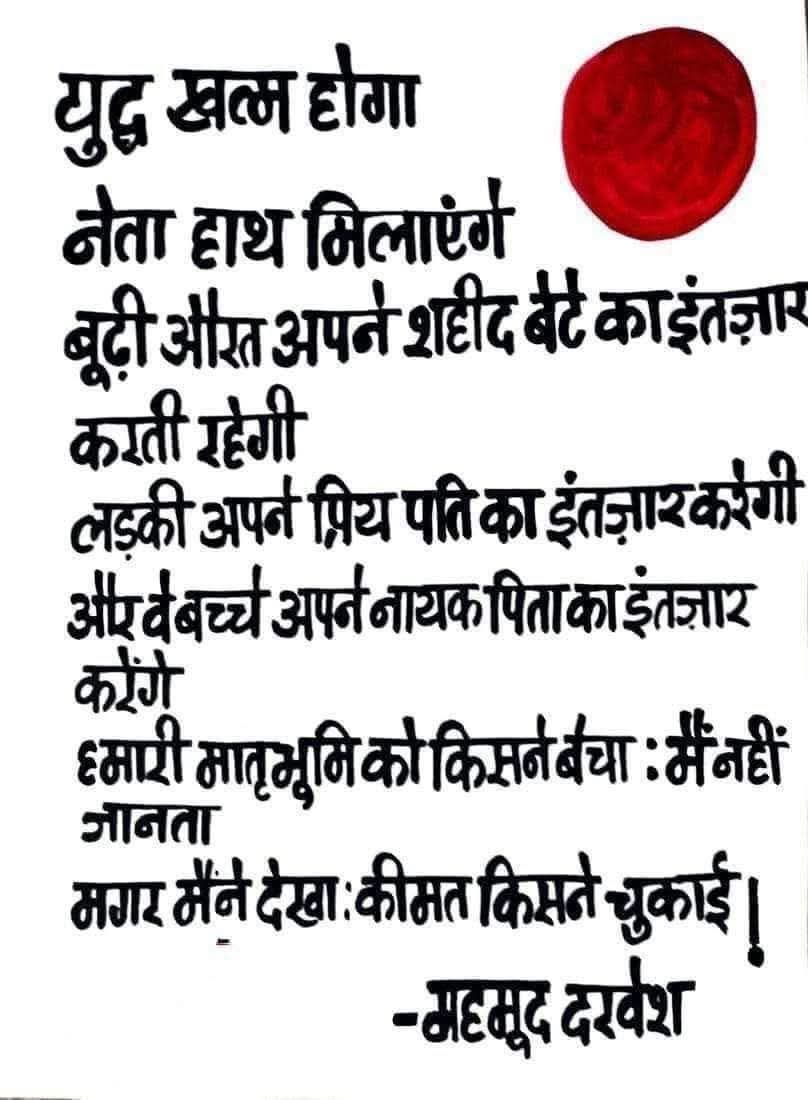 युद्ध खत्म होगा
नेता हाथ मिलाएंगे
बूढ़ी औरत अपने शहीद बेटे का इंतज़ार
करती रहेगी
लड़की अपने प्रिय पति का इंतज़ार करेगी
और वे बच्चे अपने नायक पिता का इंतज़ार
करेंगे
हमारी मातृभूमि को किसने बेचा : मैं नहीं
जानता
मगर मैंने देखा : कीमत किसने चुकाई !
-महमूद दरवेश